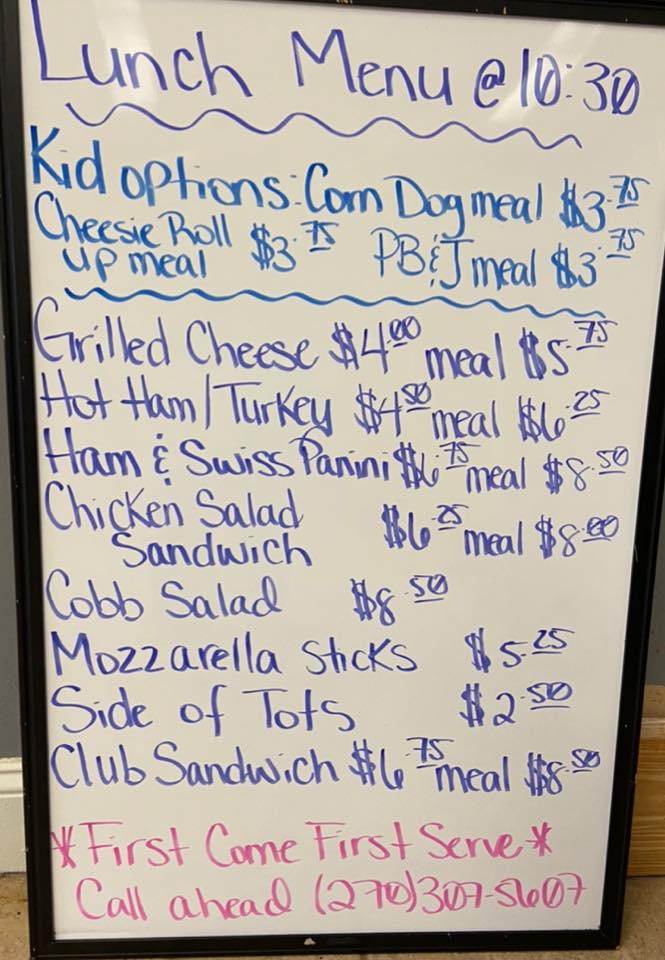 Lunch Menu @ 10:30
Kid options: Corn Dog meal $3.75
Cheesie Roll up meal $3.75 PB&J meal $3.75
Grilled Cheese $4.00 meal $5.75
Hot Ham/Turkey $4.50 meal $6.25
Ham & Swiss Panini $6.75 meal $8.50
Chicken Salad
Sandwich $6.25 meal $8.00
Cobb Salad $8.50
Mozzarella Sticks $5.25
Side of Tots $2.50
Club Sandwich $6.75 meal $8.50
*First Come First Serve*
Call ahead (270)307-5607